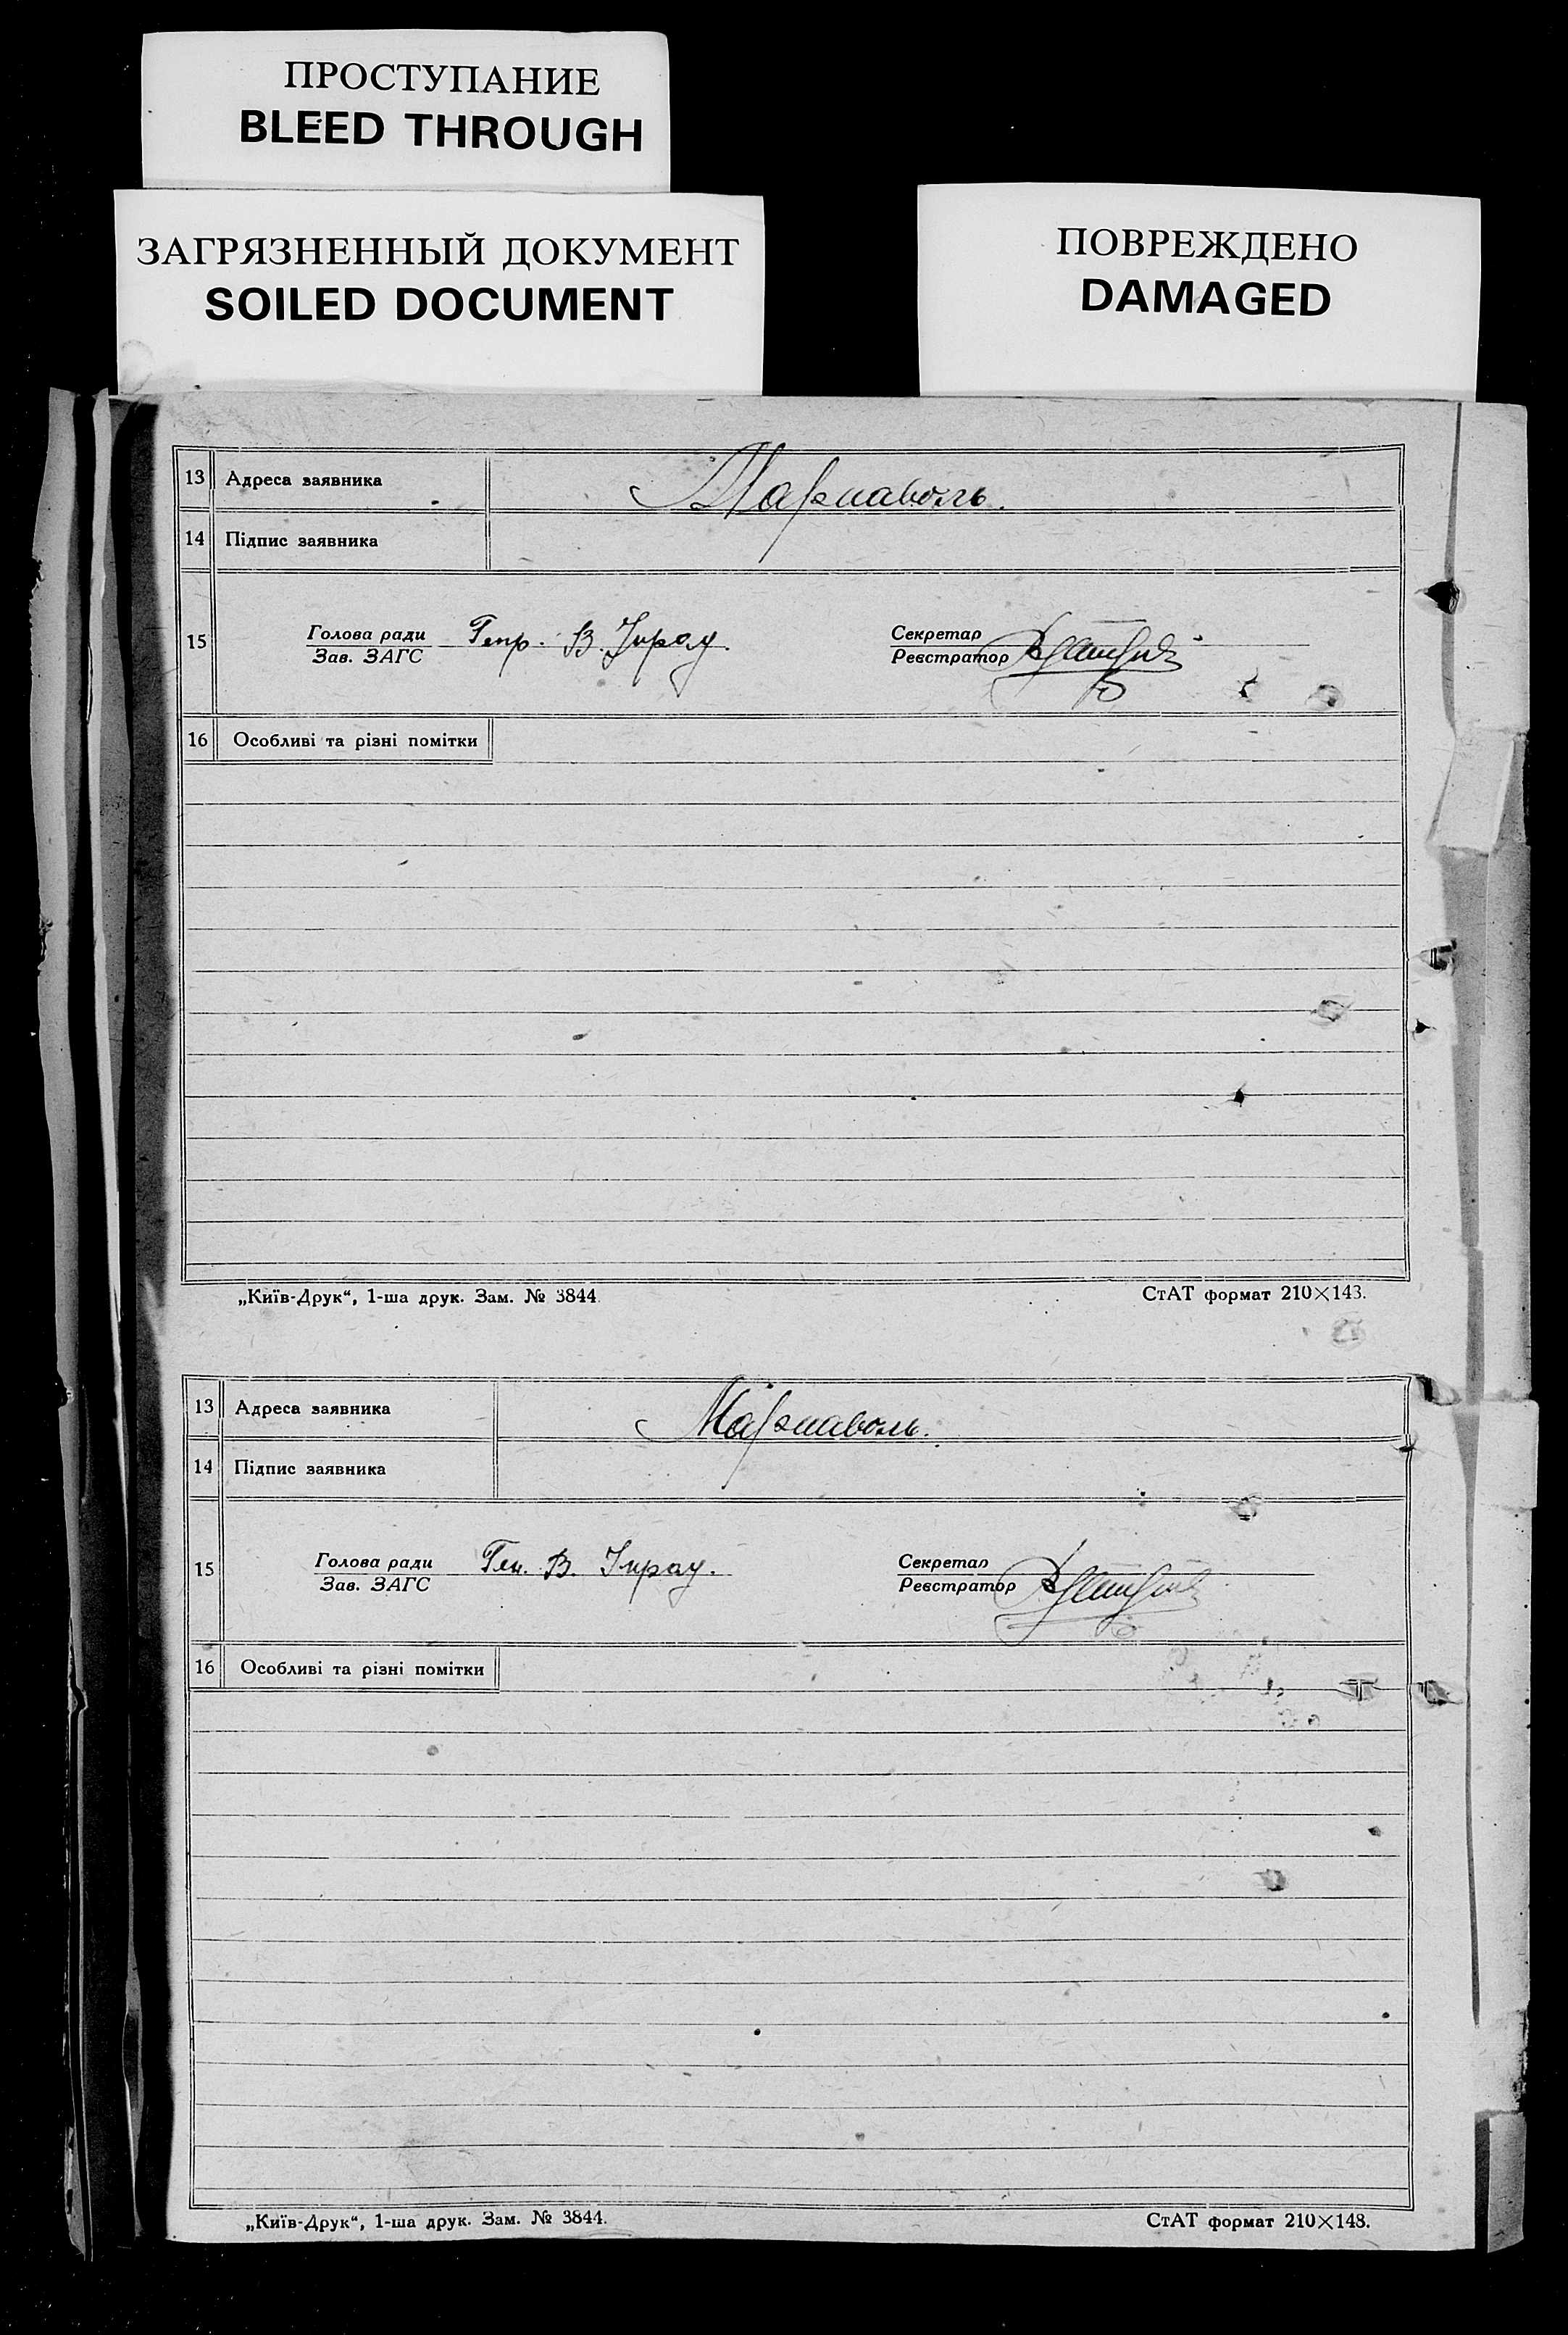 ПРОСТУПАНИЕ
BLEED THROUGH
ЗАГРЯЗНЕННЫЙ ДОКУМЕНТ
SOILED DOCUMENT
ПОВРЕЖДЕНО
DAMAGED
13 Адреса заявника
14 Підпис заявника
15 Голова ради Секретар
Зав. ЗАГС Реєстратор
16 Особливі та різні помітки
„Київ-Друк“, 1-ша друк. Зам. № 3844. СтАТ формат 210×143.
13 Адреса заявника
14 Підпис заявника
15 Голова ради Ген. В. Секретар
Зав. ЗАГС Реєстратор
16 Особливі та різні помітки
„Київ-Друк“, 1-ша друк. Зам. № 3844. СтАТ формат 210×148.